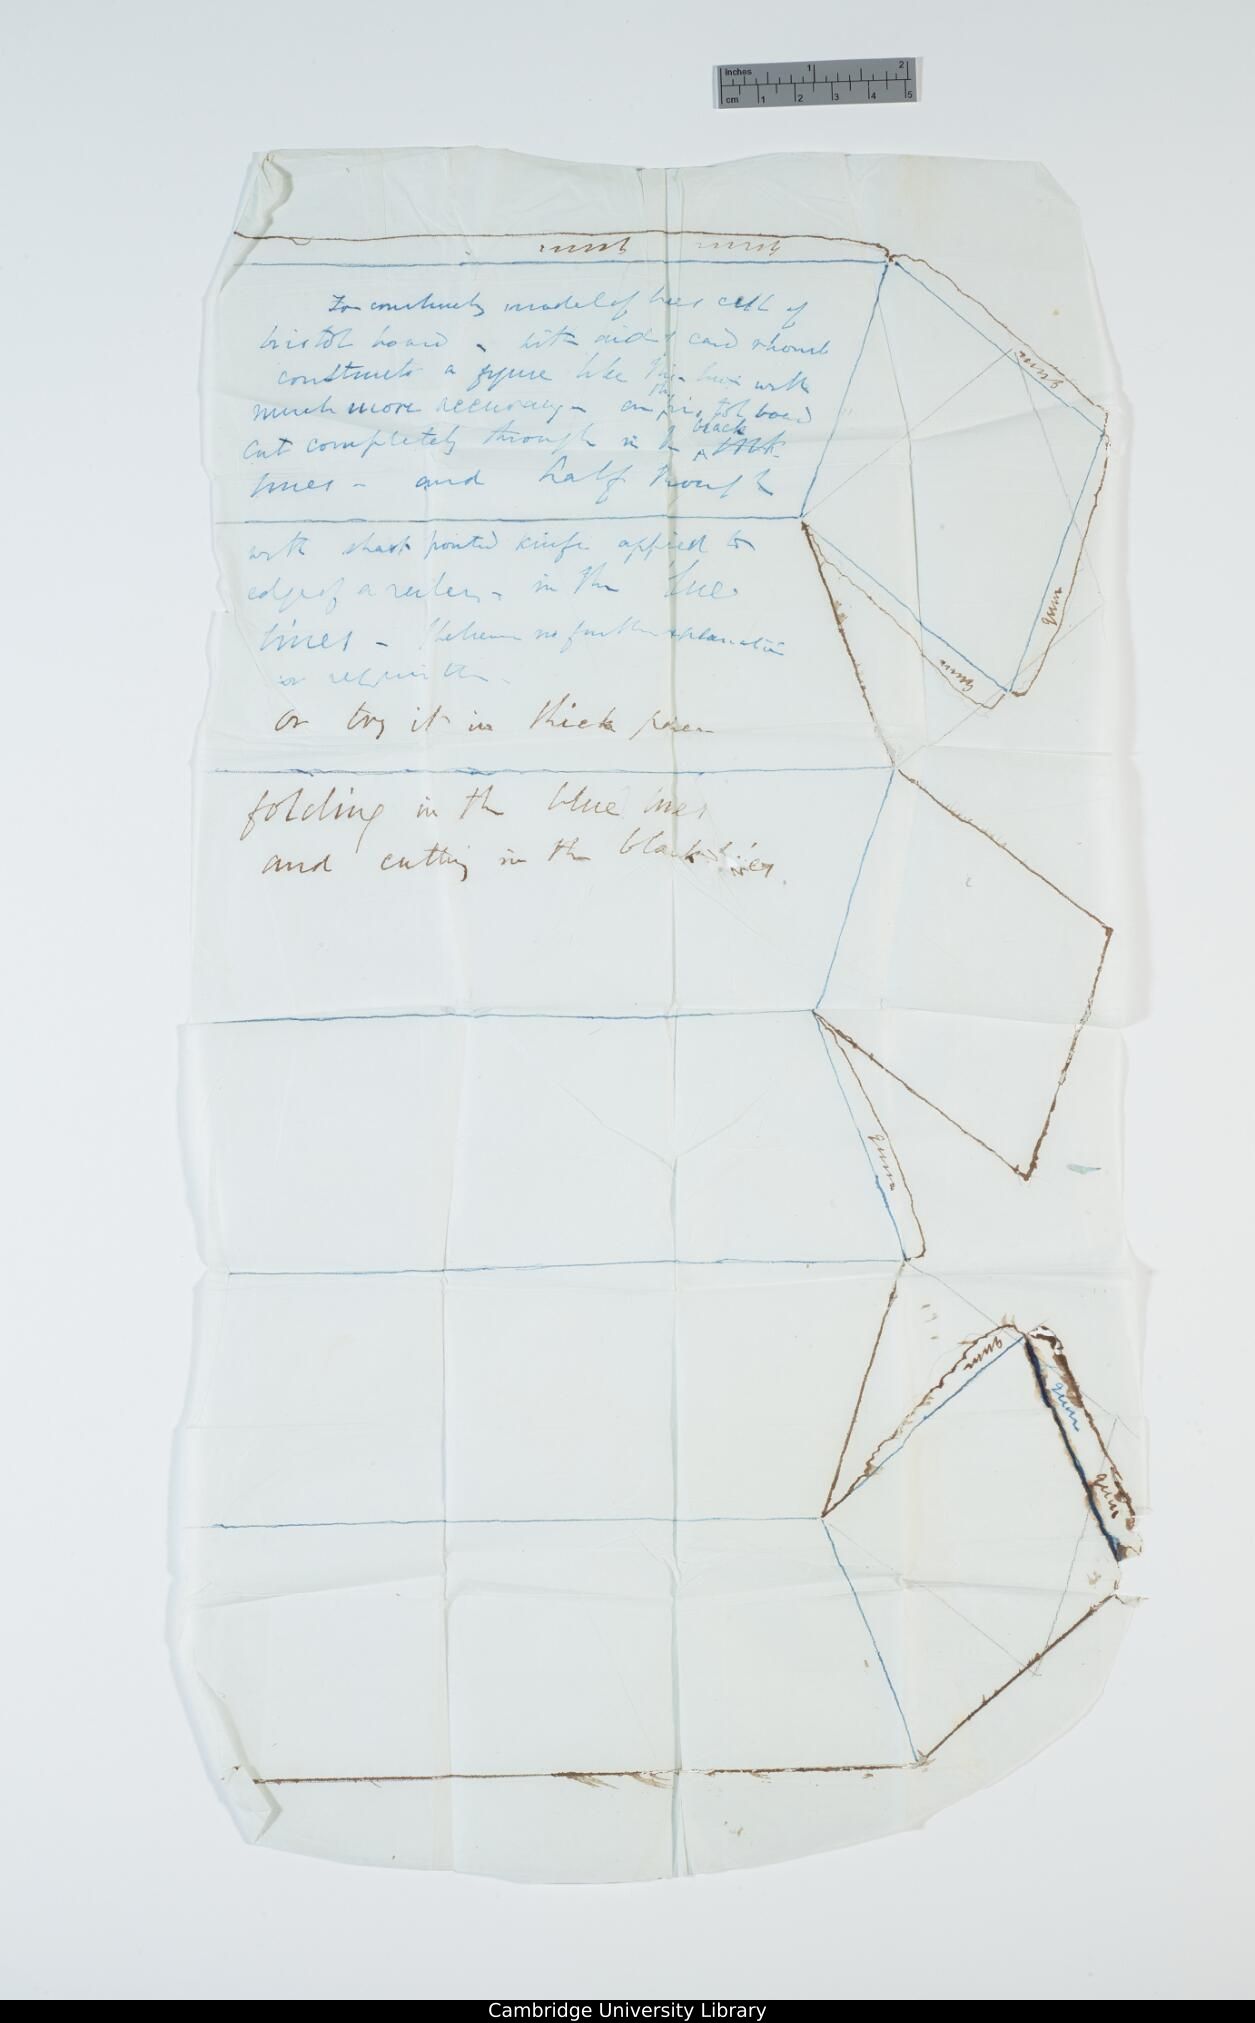 Inches 1 2
cm 1 2 3 4 5
gum gum
For constructing model of bees cell of
bristol board - with aid of card rhomb
construct a figure like this but with
much more accuracy - on bristol board
cut completely through in the black
lines - and half through
with sharp pointed knife applied to
edge of a ruler - in the blue
lines - I believe no further explanation
is requisite -
or try it in thick paper
folding in the blue lines
and cutting in the black lines.
gum
gum
gum
gum
gum
gum
gum
Cambridge University Library